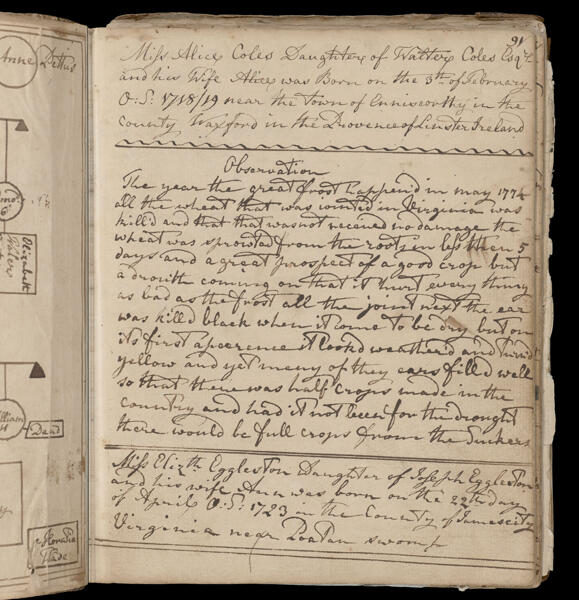 Anne Pettus
Elizabeth
Walter
William
Dead
Horatia
Slade
91
Miss Alice Coles Daughter of Walter Coles Esqr.
and his Wife Alice was Born on the 3th of February
O:S: 1718/19 near the Town of Enniscorthy in the
County Waxford in the Provence of Linster Ireland
Observation
The year the great frost happend in may 1774
all the wheat that was jointed in Virginia was
kill'd and that that was not received no damage the
wheat was sprowted from the roots in less then 5
days and a great prospect of a good crop but
a drouth coming on that it hurt every thing
as bad as the frost all the joint next the ear
was kill'd black when it come to be dry but on
its first apperence it look'd weather'd and turnd
yellow and yet meny of they ears fill'd well
so that there was half crops made in the
Country and had it not been for the drought
there would be full crops from the Suckers
Miss Elizth Eggleston Daughter of Joseph Eggleston
and his wife Ann was born on the 22th day
of April O:S: 1723 in the County of James City
Virginia near Poatan swomp